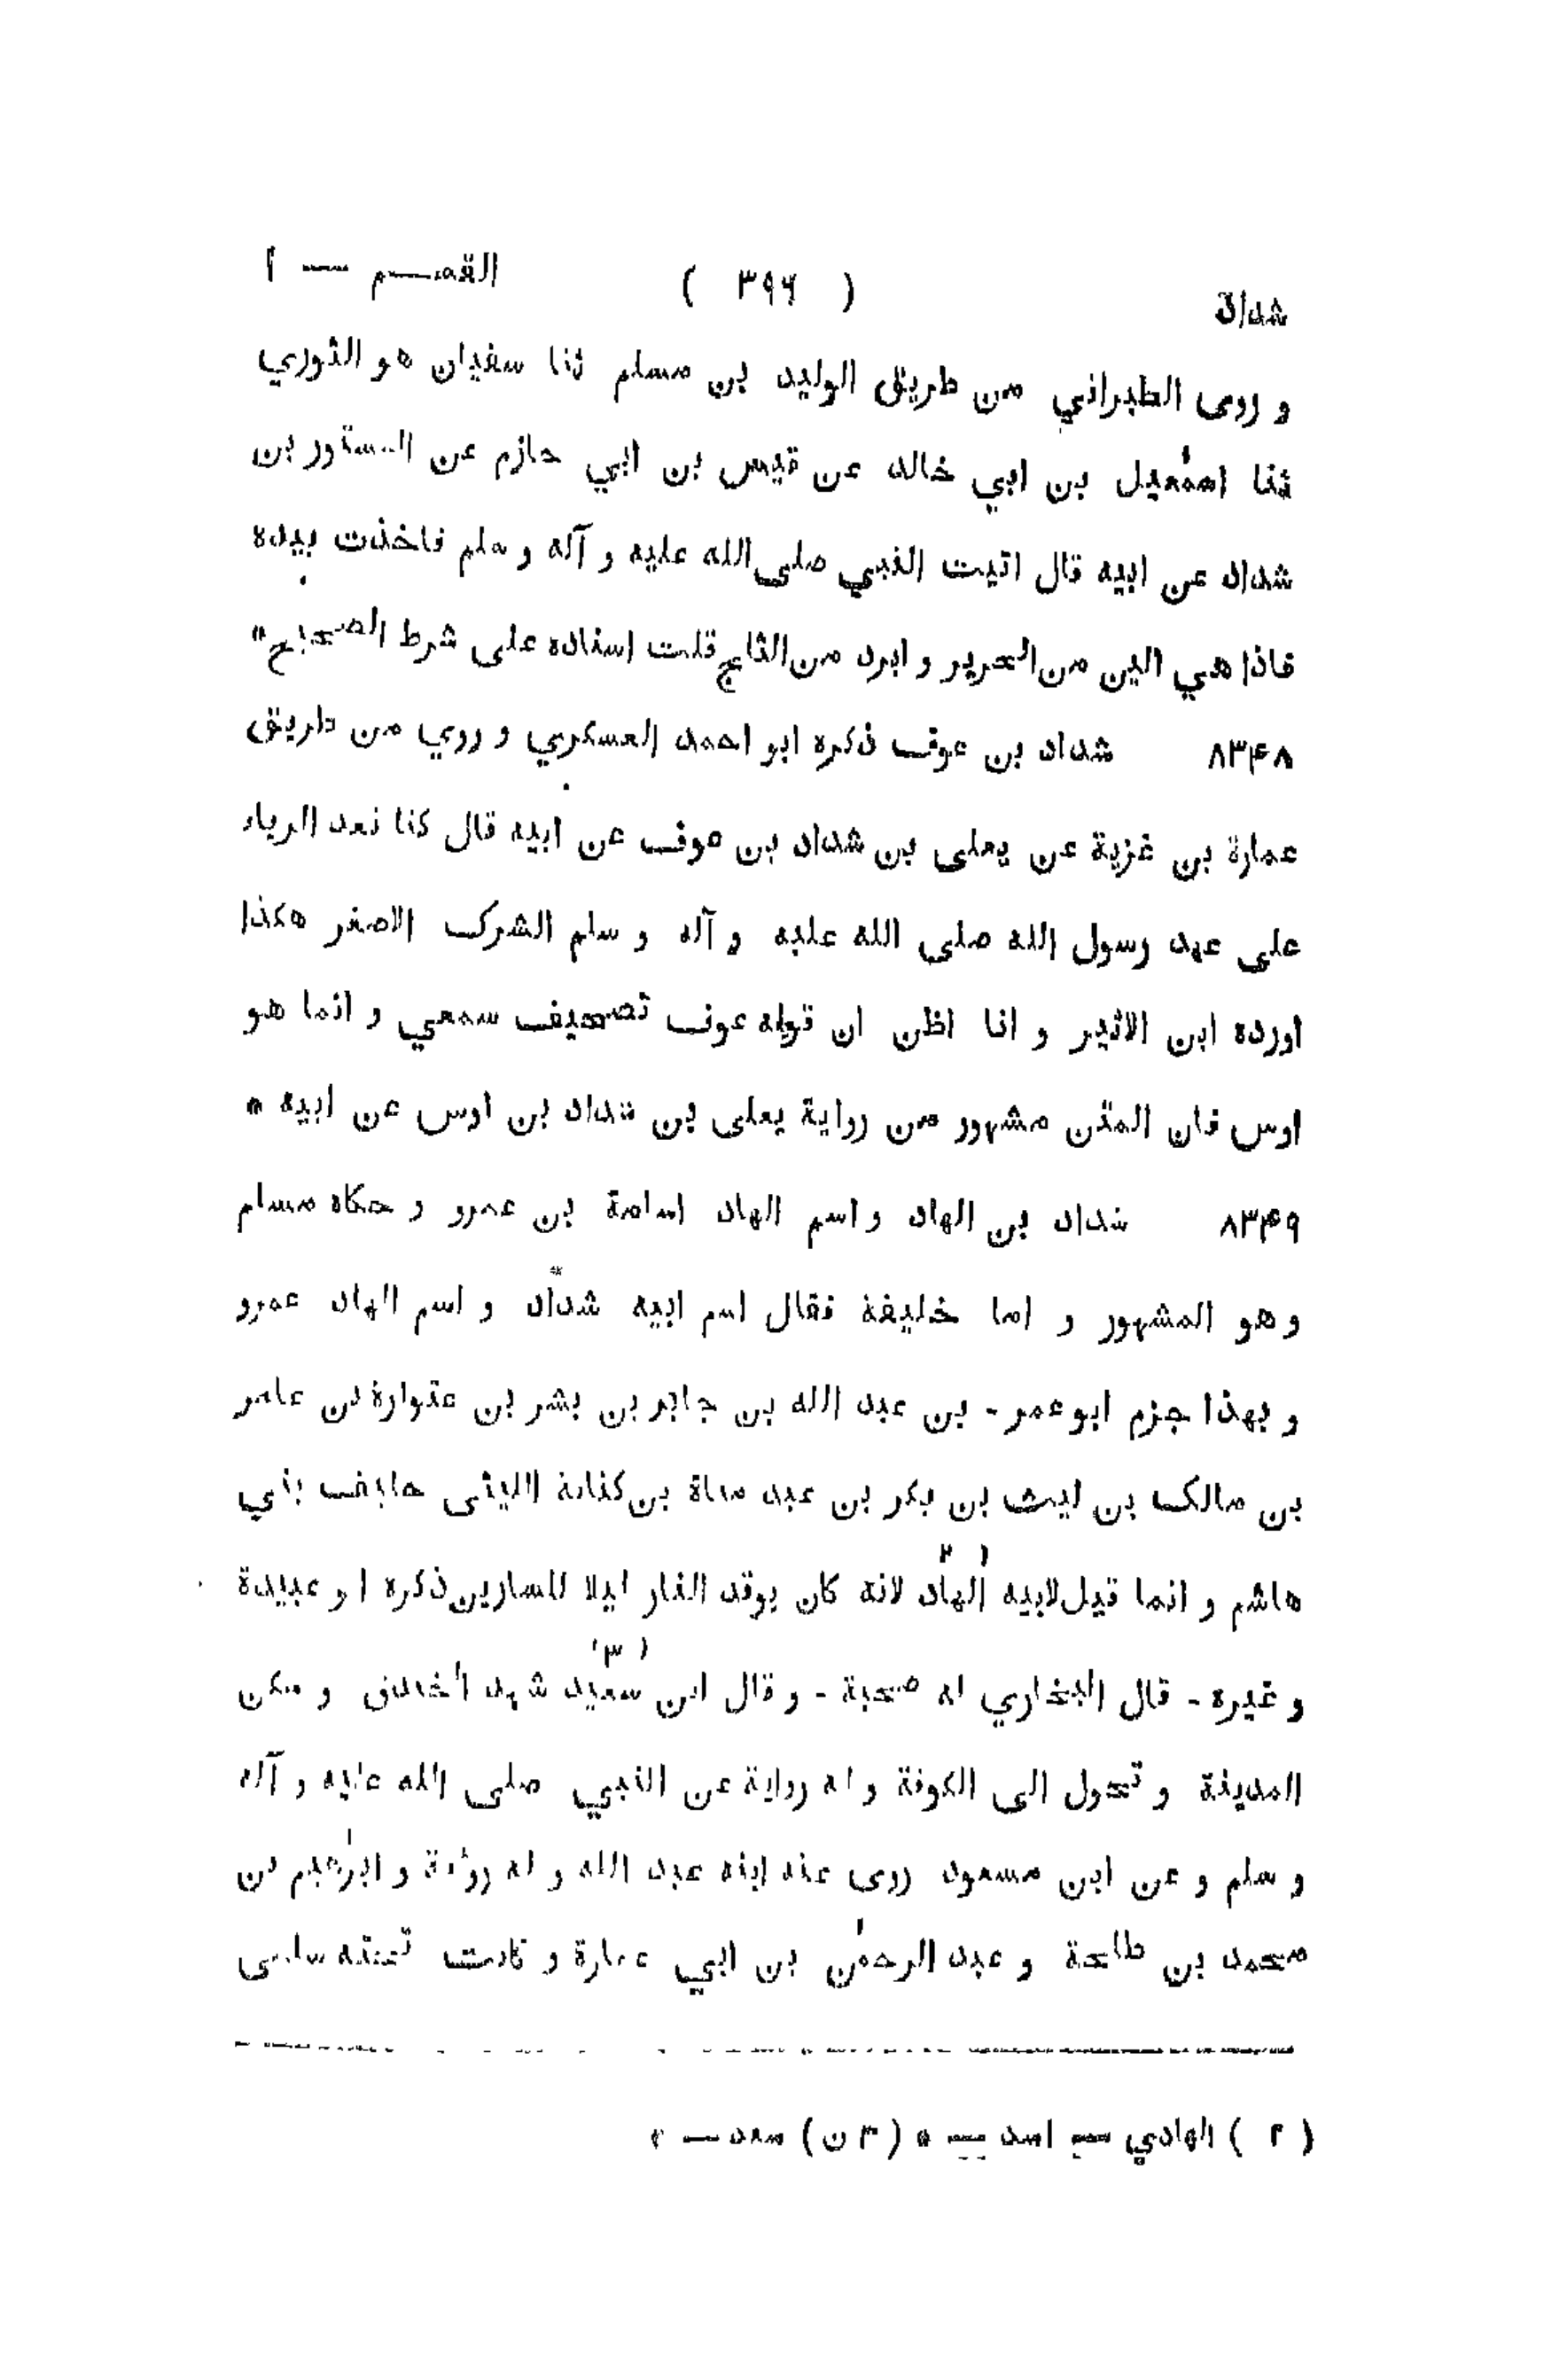 شداد ( ٣٩٦ ) القسم — ١
و روى الطبراني من طريق الوليد بن مسلم ثنا سفيان هو الثوري
ثنا اسمٰعيل بن ابي خالد عن قيس بن ابي حازم عن المستورد بن
شداد عن ابيه قال اتيت النبي صلى الله عليه و آله و سلم فاخذت بيده
فاذا هي الين من الحرير و ابرد من الثلج قلت اسناده على شرط الصحيح *
٨٣۴٨ شداد بن عوف ذكره ابو احمد العسكري و روي من طريق
عمارة بن غزية عن يعلى بن شداد بن عوف عن ابيه قال كنا نعد الرياء
على عهد رسول الله صلى الله عليه و آله و سلم الشرك الاصغر هكذا
اورده ابن الاثير و انا اظن ان قوله عوف تصحيف سمعي و انما هو
اوس فان المتن مشهور من رواية يعلى بن شداد بن اوس عن ابيه *
٨٣۴٩ شداد بن الهاد و اسم الهاد اسامة بن عمرو و حكاه مسلم
و هو المشهور و اما خليفة فقال اسم ابيه شداد و اسم الهاد عمرو
و بهذا جزم ابو عمر - بن عبد الله بن جابر بن بشر بن عتوارة بن عامر
بن مالك بن ليث بن بكر بن عبد مناة بن كنانة الليثى حليف بني
هاشم و انما قيل لابيه الهاد (٢) لانه كان يوقد النار ليلا للسارين ذكره ابو عبيدة
و غيره - قال البخاري له صحبة - و قال ابن سعيد (٣) شهد الخندق و سكن
المدينة و تحول الى الكوفة و له رواية عن النبي صلى الله عليه و آله
و سلم و عن ابن مسعود روى عنه ابنه عبد الله و له رؤية و ابرٰهيم بن
محمد بن طلحة و عبد الرحمٰن بن ابي عمارة و كانت تحته سلمى
( ٢ ) الهادي — اسد — * (٣ ن) سعد — *